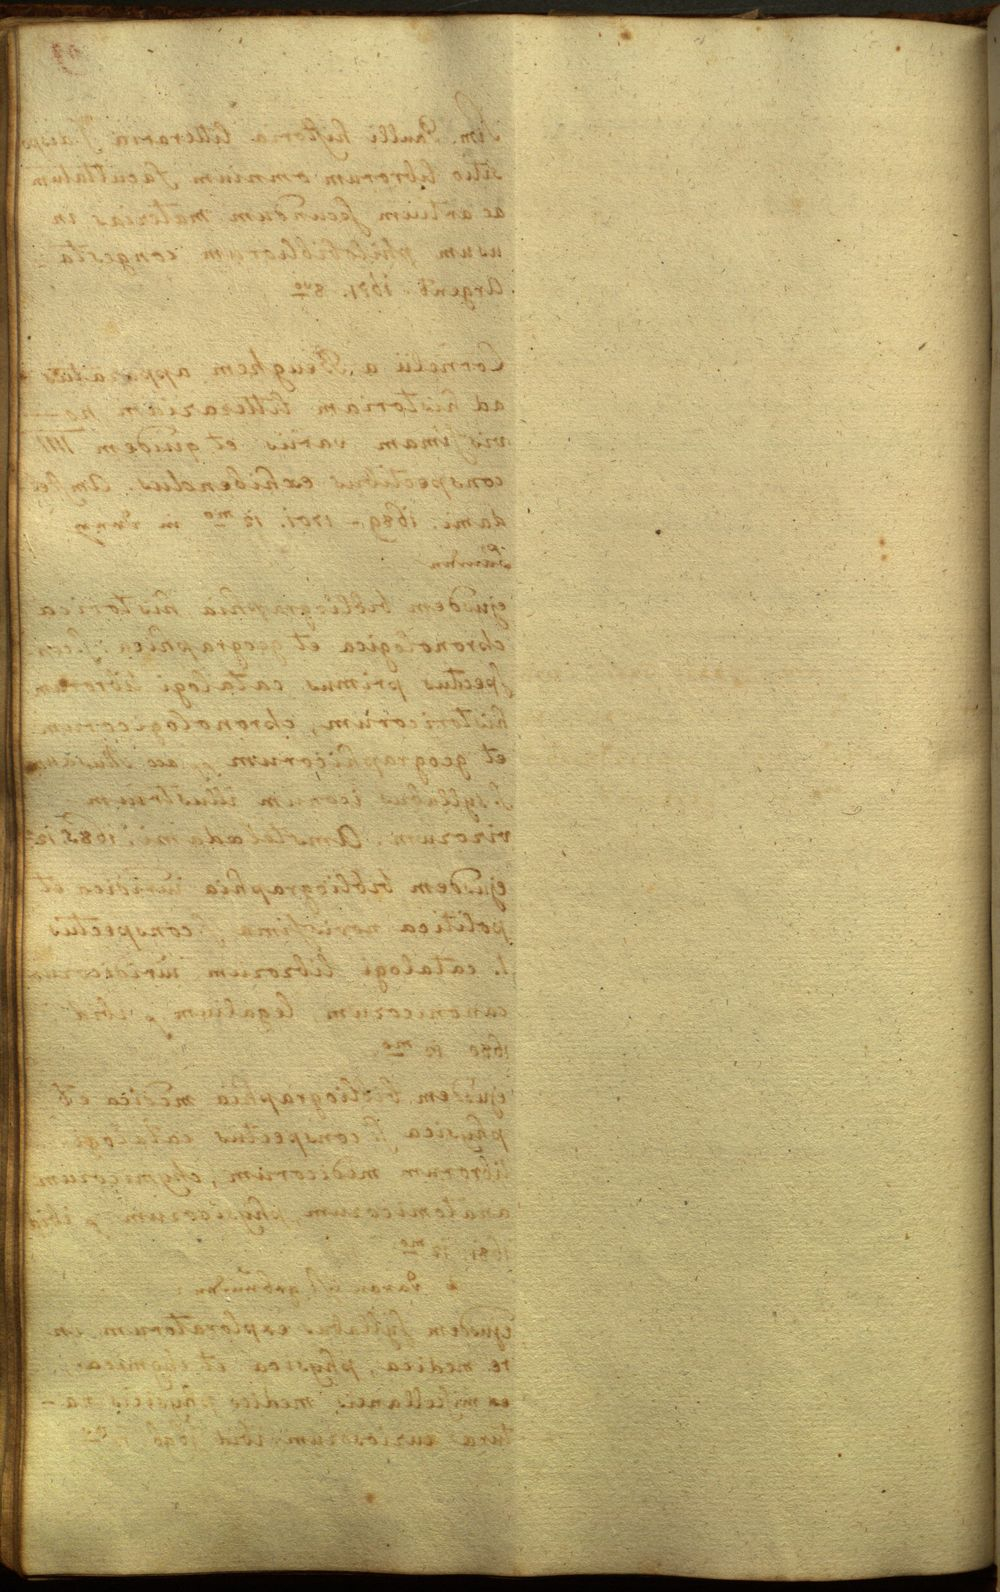 Sim. Paulli historia litteraria s. dispo
sitio librorum omnium facultatum
ac artium secundum materias in
usum philobibliorum congesta
Argent. 1671. 8vo
Cornelii a Beughem apparatus
ad historiam litterariam no-
vissimam variis et quidem IIII
conspectibus exhibendus. Amste
dami: 1689 - 1701. 12mo in
ejusdem bibliographia historica
chronologica et geographica s. con
spectus primus catalogi librorum
historicorum, chronologicorum
et geographicorum
s. syllabus iconum illustrium
virorum. Amsteladami: 1685. 12
ejusdem bibliographia iuridica et
politica novissima s. conspectus
s. catalogi librorum iuridicorum
canonicorum legalium ibid
1680 12mo.
ejusdem bibliographia medica et
physica s. conspectus catalogi
librorum medicorum, chymicorum
anatomicorum, physicorum ibid
1681. 12mo.
ejusdem syllabus exploratorum in
re medica, physica et chymica
ex miscellaneis medico physicis na-
turae curiosorum ibid 12mo